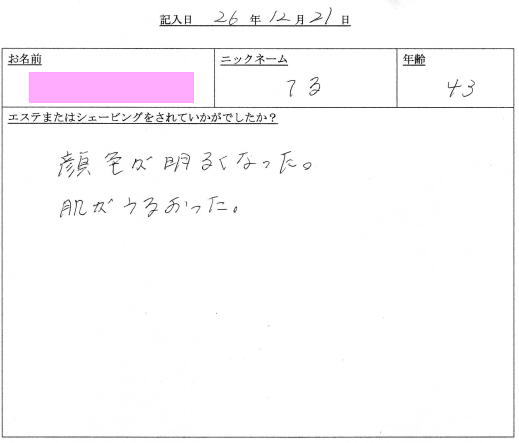 記入日 26 年 12 月 21 日
お名前 ニックネーム 年齢
てる 43
エステまたはシェービングをされていかがでしたか？
顔色が明るくなった。
肌がうるおった。